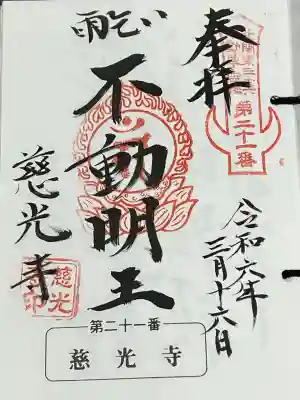 奉拝
第二十一番
雨乞い
不動明王
慈光寺
令和六年
三月十六日
慈光
第二十一番
慈光寺